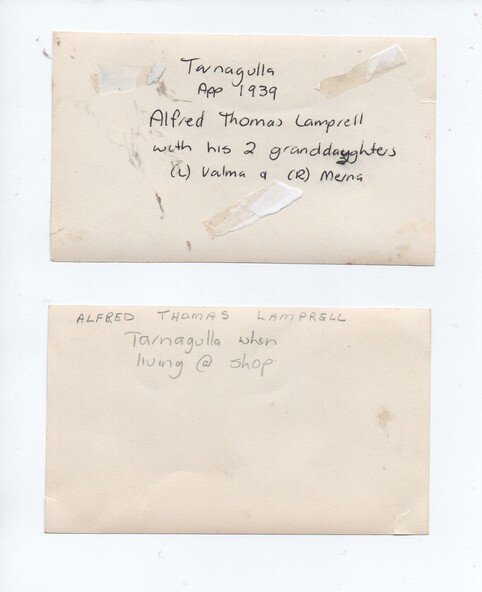 Tarnagulla
App 1939
Alfred Thomas Lamprell
with his 2 granddaughters
(L) Valma & (R) Merna
ALFRED THOMAS LAMPRELL
Tarnagulla when
living @ shop